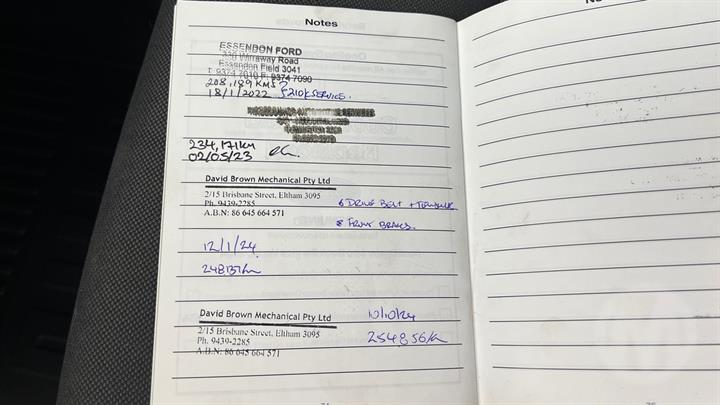 Notes
ESSENDON FORD
Wirraway Road
Essendon Field 3041
T 9374 7010 F: 9374 7090
208,189 KMS
18/1/2022 210K SERVICE.
234,171km
02/05/23
David Brown Mechanical Pty Ltd
2/15 Brisbane Street, Eltham 3095
Ph. 9439-2285
A.B.N: 86 645 664 571
DRIVE BELT +
& FRONT BRAKES.
12/1/24
248137km
David Brown Mechanical Pty Ltd
2/15 Brisbane Street, Eltham 3095
Ph. 9439-2285
A.B.N: 86 645 664 571
10/10/24
254856km